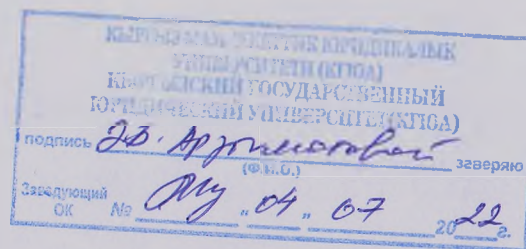 КЫРГЫЗ МАМЛЕКЕТТИК ЮРИДИКАЛЫК
УНИВЕРСИТЕТИ (КГЮА)
КЫРГЫЗСКИЙ ГОСУДАРСТВЕННЫЙ
ЮРИДИЧЕСКИЙ УНИВЕРСИТЕТ (КГЮА)
подпись Э.Б. заверяю
(Ф.И.О.)
Заведующий
ОК № "04" 07 2022г.